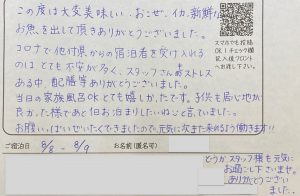 この度は大変美味しい、おこぜ、イカ、新鮮な
お魚を出して頂きありがとうございました。
コロナで他府県からの宿泊者を受け入れる
のはとても不安が多く、スタッフさんもストレス
ある中、配膳等ありがとうございました。
当日の家族風呂OKとても嬉しかったです。子供も居心地が
良かった様であと1泊お泊まりしたいねと言ていました。
お腹いっぱいぜいたくできましたので、元気にまた来れるよう働きます!!
スマホでも投稿
OK!チェック後
記入後フロント
へお渡し下さい。
ご宿泊日 8/8 ~ 8/9 お名前(匿名可)
どうか、スタッフ様も元気に
お過ごし下さいませ。
ありがとうござい
ました。